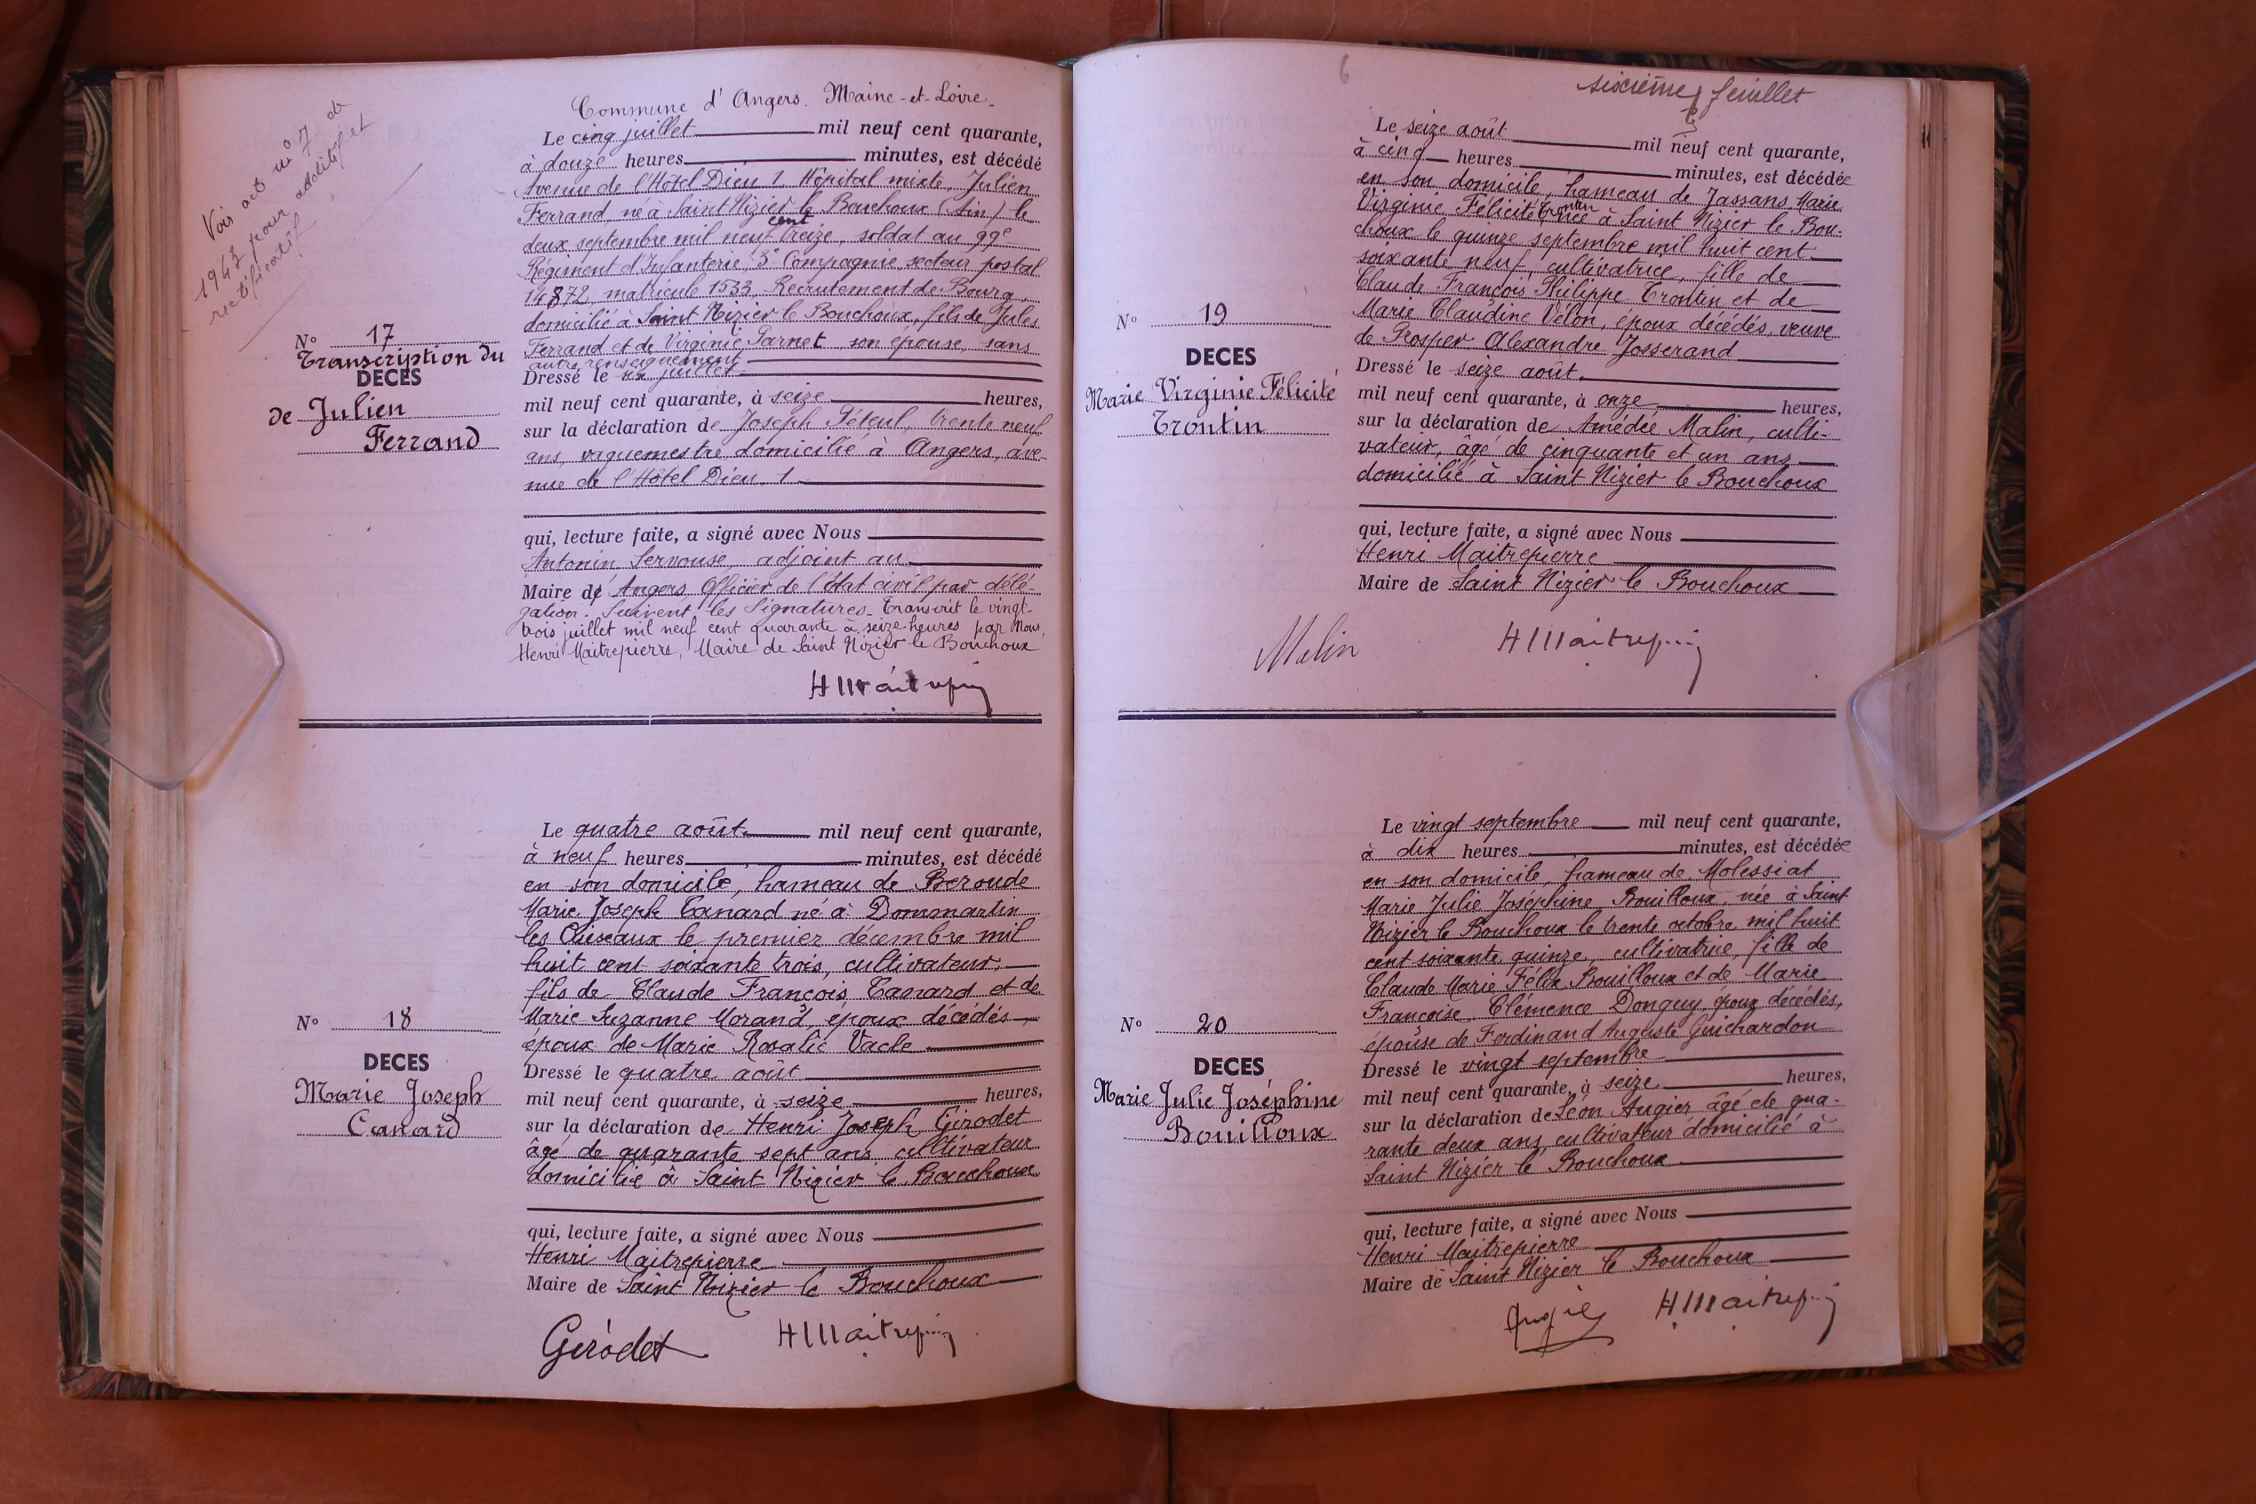 Voir acte n° 7 de
1943 pour additif et
rectificatif
N° 17
Transcription du
DECES
de Julien
Ferrand
Commune d'Angers. Maine-et-Loire-
Le cinq juillet mil neuf cent quarante,
à douze heures minutes, est décédé
Avenue de l'Hôtel Dieu 1, Hôpital mixte, Julien
Ferrand, né à Saint Nizier le Bouchoux (Ain) le
deux septembre mil neuf cent treize, soldat au 99e
Régiment d'Infanterie, 3e Compagnie, secteur postal
14872, matricule 1533, Recrutement de Bourg,
domicilié à Saint Nizier le Bouchoux, fils de Jules
Ferrand et de Virginie Parnet son épouse, sans
autre renseignement
Dressé le six juillet
mil neuf cent quarante, à seize heures,
sur la déclaration de Joseph Péteul, trente neuf
ans, vaguemestre domicilié à Angers, ave-
nue de l'Hôtel Dieu. 1
qui, lecture faite, a signé avec Nous
Antonin Servouse, adjoint au
Maire de Angers Officier de l'état civil par délé-
gation. Suivent les Signatures. Transcrit le vingt-
trois juillet mil neuf cent quarante à seize heures par Nous,
Henri Maitrepierre, Maire de Saint Nizier le Bouchoux
H Maitrepierre
N° 18
DECES
Marie Joseph
Canard
Le quatre août mil neuf cent quarante,
à neuf heures minutes, est décédé
en son domicile, hameau de Beroude
Marie Joseph Canard né à Dommartin
les Cuiseaux le premier décembre mil
huit cent soixante trois, cultivateur,
fils de Claude François Canard et de
Marie Suzanne Morand, époux décédés,
époux de Marie Rosalie Vacle
Dressé le quatre août
mil neuf cent quarante, à seize heures,
sur la déclaration de Henri Joseph Girodet
âgé de quarante sept ans, cultivateur
domicilié à Saint Nizier le Bouchoux
qui, lecture faite, a signé avec Nous
Henri Maitrepierre
Maire de Saint Nizier le Bouchoux
Girodet H Maitrepierre
6
sixième feuillet
N° 19
DECES
Marie Virginie Félicité
Trontin
Le seize août mil neuf cent quarante,
à cinq heures minutes, est décédée
en son domicile, hameau de Jassans Marie
Virginie Félicité Trontin née à Saint Nizier le Bou-
choux le quinze septembre mil huit cent
soixante neuf, cultivatrice, fille de
Claude François Philippe Trontin et de
Marie Claudine Velon, époux décédés, veuve
de Prosper Alexandre Josserand
Dressé le seize août
mil neuf cent quarante, à onze heures,
sur la déclaration de Amédée Malin, culti-
vateur, âgé de cinquante et un ans
domicilié à Saint Nizier le Bouchoux
qui, lecture faite, a signé avec Nous
Henri Maitrepierre
Maire de Saint Nizier le Bouchoux
Malin H Maitrepierre
N° 20
DECES
Marie Julie Joséphine
Bouilloux
Le vingt septembre mil neuf cent quarante,
à dix heures minutes, est décédée
en son domicile, hameau de Molessiat
Marie Julie Joséphine Bouilloux, née à Saint
Nizier le Bouchoux le trente octobre mil huit
cent soixante quinze, cultivatrice, fille de
Claude Marie Félix Bouilloux et de Marie
Françoise Clémence Donguy, époux décédés,
épouse de Ferdinand Auguste Guichardon
Dressé le vingt septembre
mil neuf cent quarante, à seize heures,
sur la déclaration de Léon Augier âgé de qua-
rante deux ans cultivateur domicilié à
Saint Nizier le Bouchoux
qui, lecture faite, a signé avec Nous
Henri Maitrepierre
Maire de Saint Nizier le Bouchoux
Augier H Maitrepierre